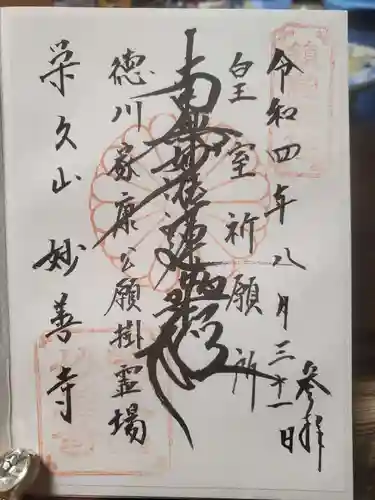 令和四年八月三十一日
参拝
皇室祈願所
南無妙法蓮華経
徳川家康公願掛霊場
栄久山妙善寺